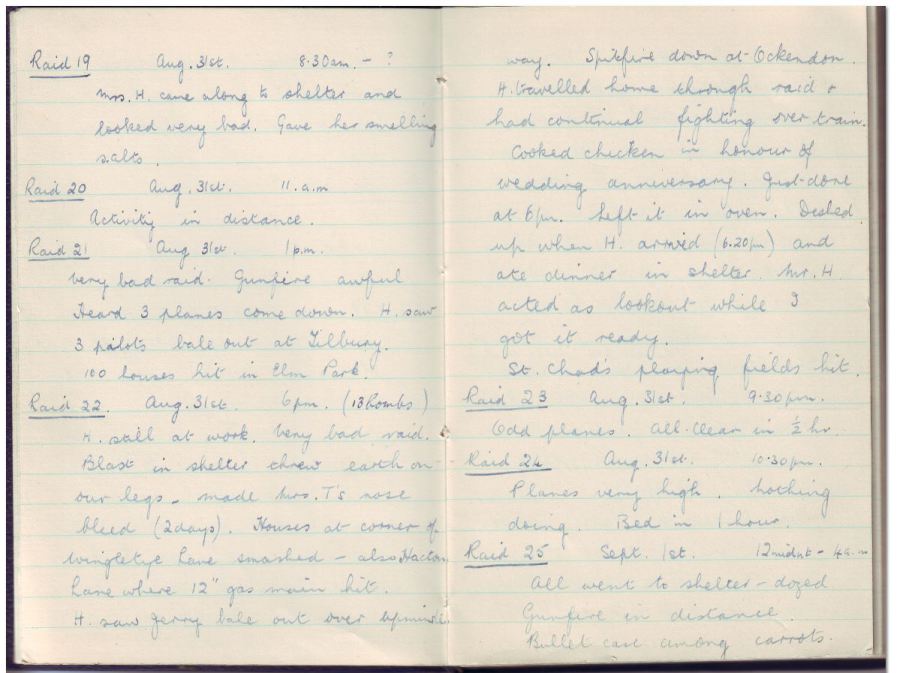 Raid 19 Aug. 31st. 8.30am. - ?
Mrs. H. came along to shelter and
looked very bad. Gave her smelling
salts.
Raid 20 Aug. 31st. 11.a.m
Activity in distance.
Raid 21 Aug 31st. 1p.m.
Very bad raid. Gunfire awful
Heard 3 planes come down. H. saw
3 pilots bale out at Tilbury.
100 houses hit in Elm Park.
Raid 22 Aug. 31st. 6pm. (13 bombs)
H. still at work. Very bad raid.
Blast in shelter threw earth on
our legs - made Mrs. T's nose
bleed (2days). Houses at corner of
Wingletye Lane smashed - also Hacton
Lane where 12" gas main hit.
H. saw Jerry bale out over
way. Spitfire down at Ockendon.
H. travelled home through raid &
had continual fighting over train.
Cooked chicken in honour of
wedding anniversary. Just done
at 6pm. Left it in oven. Dished
up when H. arrived (6.20pm) and
ate dinner in shelter. Mr. H.
acted as lookout while I
got it ready.
St. Chad's playing fields hit.
Raid 23 Aug. 31st. 9.30pm.
Odd planes. All clear in ½ hr.
Raid 24 Aug. 31st. 10.30pm.
Planes very high. Nothing
doing. Bed in 1 hour.
Raid 25 Sept. 1st. 12 midnt - 4a.m
All went to shelter - dozed
Gunfire in distance.
Bullet case among carrots.